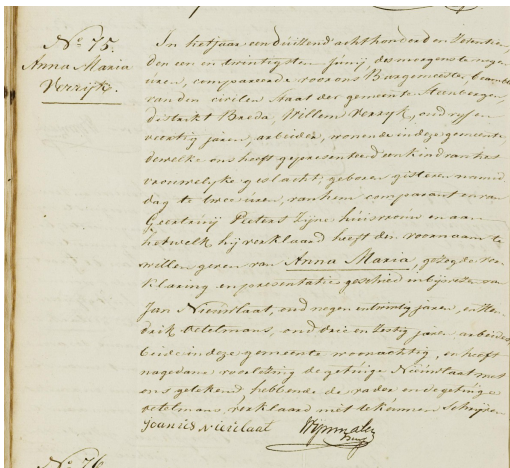 No. 75.
Anna Maria
Verrijk.
In het jaar een duizend acht honderd en zeventien,
den een en twintigsten Junij, des morgens te negen
uren, compareerde voor ons Burgemeester,
van den civilen staat der gemeente Steenbergen,
district Breda, Willem Verryk, oud vyf en
veertig jaren, arbeider, wonende in deze gemeente,
dewelke ons heeft gepresenteerd een kind van het
vrouwelyke geslacht, geboren gisteren namid
dag te twee uren, van hem comparant en van
Geertruij Pieters Zijne huisvrouw en aan
hetwelk hij verklaard heeft den voornaam te
willen geven van Anna Maria, gezegde ver
klaring en presentatie geschied in bijwezen van
Jan Nieuwlaat, oud negen en twintig jaren, en Hen
drik Oetelmans, oud drie en jaren arbeiders,
beide in deze gemeente woonachtig, en heeft
na gedane voorlezing de getuige Nieuwlaat met
ons getekend, hebbende de vader en de getuige
Oetelmans, verklaard niet te kunnen Schrijven
Joanies Nieulaat
No. 76